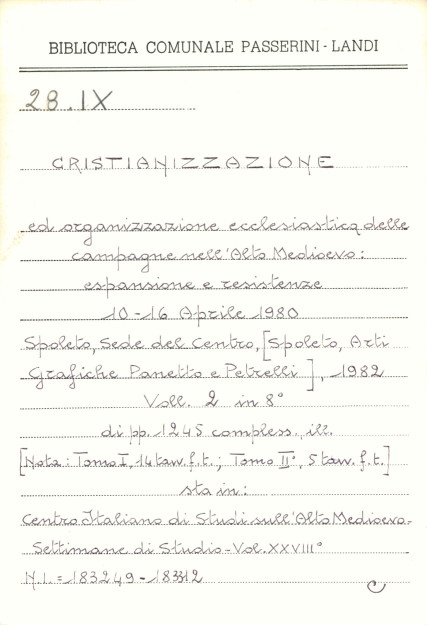 BIBLIOTECA COMUNALE PASSERINI - LANDI
28.IX
CRISTIANIZZAZIONE
ed organizzazione ecclesiastica delle
campagne nell'Alto Medioevo:
espansione e resistenze
10-16 Aprile 1980
Spoleto, Sede del Centro, [Spoleto, Arti
Grafiche Panetto e Petrelli], 1982
Voll. 2 in 8°
di pp. 1245 compless., ill.
[Nota: Tomo I, 14 tav. f.t.; Tomo II°, 5 tav. f.t.]
sta in:
Centro Italiano di Studi sull'Alto Medioevo.
Settimane di Studio - Vol. XXVIII°
N.I. = 183249-